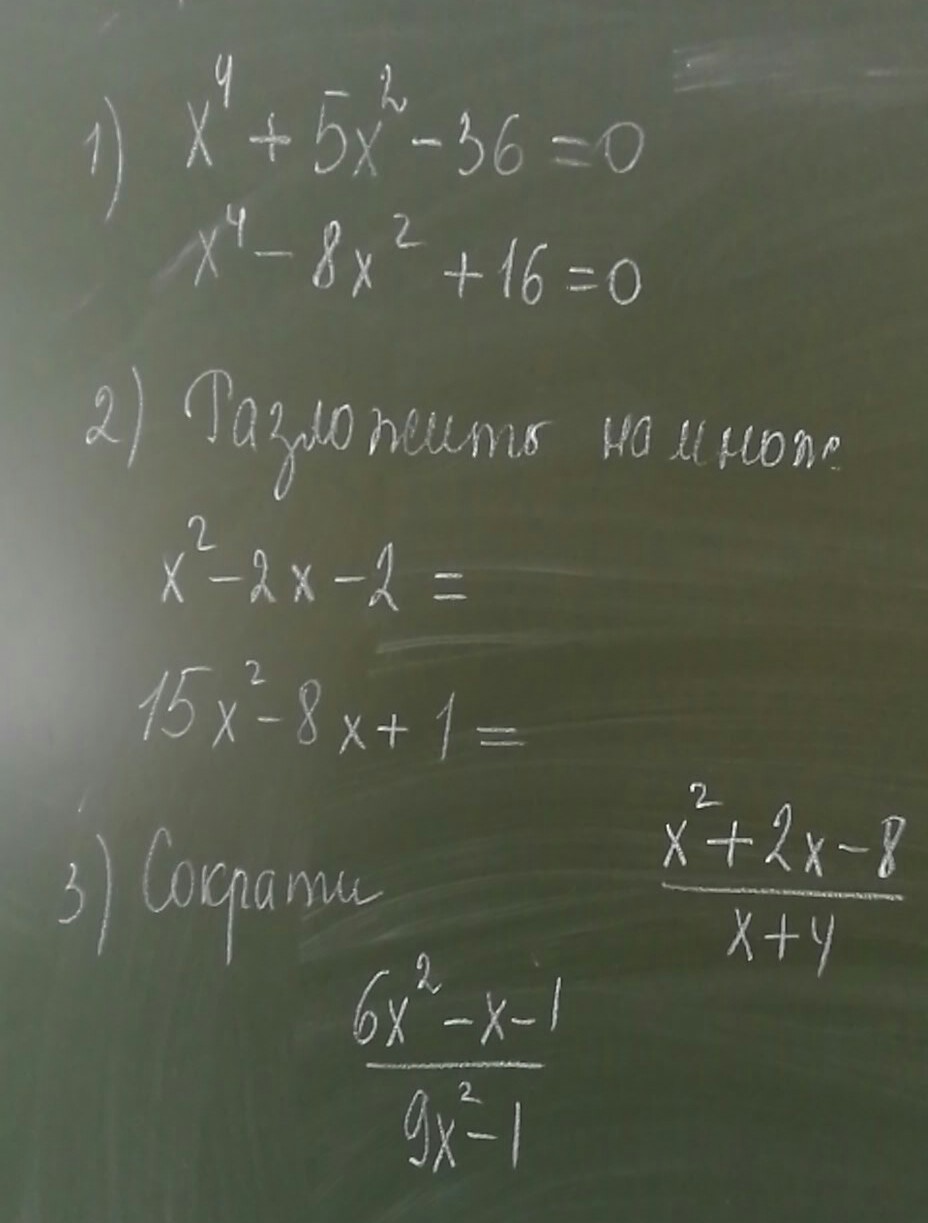 1) x⁴ + 5x² - 36 = 0
x⁴ - 8x² + 16 = 0
2) Разложить на множ.
x² - 2x - 2 =
15x² - 8x + 1 =
3) Сократи
(x² + 2x - 8)/(x + 4)
(6x² - x - 1)/(9x² - 1)